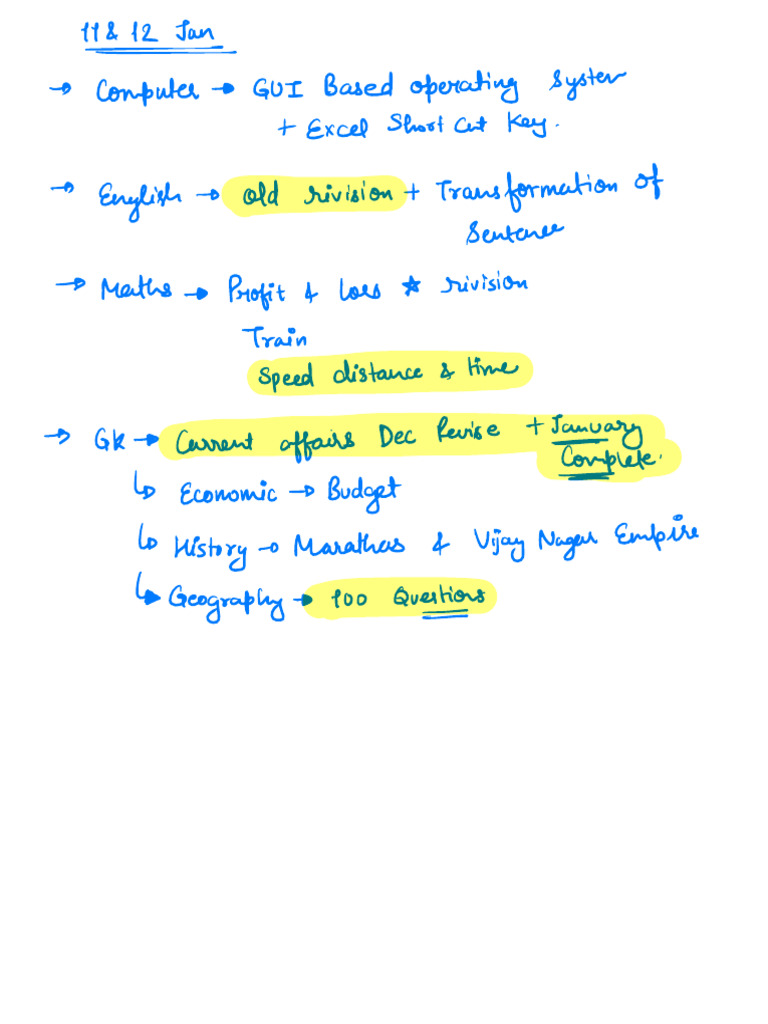 11 & 12 Jan
→ Computer → GUI Based operating System
+ Excel Short Cut Key.
→ English → old rivision + Transformation of
Sentence
→ Maths → Profit & Loss ★ rivision
Train
Speed distance & time
→ GK → Current affairs Dec Revise + January
Complete.
↳ Economic → Budget
↳ History → Marathas & Vijay Nagar Empire
↳ Geography → 100 Questions